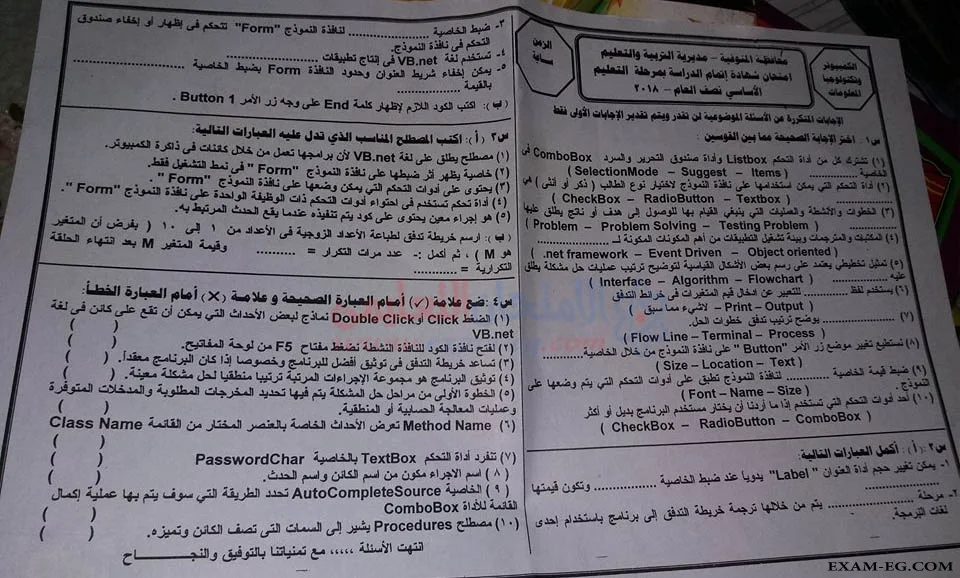 الكمبيوتر
وتكنولوجيا
المعلومات
محافظة المنوفية – مديرية التربية والتعليم
امتحان شهادة إتمام الدراسة بمرحلة التعليم
الأساسي نصف العام – ٢٠١٨
الزمن
ساعة
الإجابات المتكررة عن الأسئلة الموضوعية لن تقدر ويتم تقدير الإجابات الأولى فقط
س١ اختر الإجابة الصحيحة مما بين القوسين
(١) تشترك كل من أداة التحكم Listbox وأداة صندوق التحرير والسرد ComboBox فى
الخاصية ............ ( SelectionMode – Suggest – Items )
(٢) أداة التحكم التي يمكن استخدامها على نافذة النموذج لاختيار نوع الطالب ( ذكر أو أنثى ) هي
............ ( CheckBox – RadioButton – Textbox )
(٣) الخطوات والأنشطة والعمليات التي ينبغي القيام بها للوصول إلى هدف أو ناتج يطلق عليها
( Problem – Problem Solving – Testing Problem )
(٤) المكتبات والمترجمات وبيئة تشغيل التطبيقات من أهم المكونات المكونة لـ ............
( .net framework – Event Driven – Object oriented )
(٥) تمثيل تخطيطي يعتمد على رسم بعض الأشكال القياسية لتوضيح ترتيب عمليات حل مشكلة يطلق
عليه ............ ( Interface – Algorithm – Flowchart )
(٦) يستخدم لفظ ............ للتعبير عن ادخال قيم المتغيرات فى خرائط التدفق
( Print – Output – لاشيء مما سبق )
(٧) ............ يوضح ترتيب تدفق خطوات الحل.
( Flow Line – Terminal – Process )
(٨) تستطيع تغيير موضع زر الأمر "Button" على نافذة النموذج من خلال الخاصية............
( Size – Location – Text )
(٩) ضبط قيمة الخاصية ............ لنافذة النموذج تطبق على أدوات التحكم التي يتم وضعها على
النموذج. ( Font – Name – Size )
(١٠) أحد أدوات التحكم التي تستخدم إذا ما أردنا أن يختار مستخدم البرنامج بديل أو أكثر
( CheckBox – RadioButton – ComboBox )
س٢: (أ) : أكمل العبارات التالية:
١- يمكن تغيير حجم أداة العنوان " Label" يدوياً عند ضبط الخاصية ............ وتكون قيمتها
............
٢- مرحلة ............ يتم من خلالها ترجمة خريطة التدفق إلى برنامج باستخدام إحدى
لغات البرمجة.
٣- ضبط الخاصية ............ لنافذة النموذج "Form" تتحكم فى إظهار أو إخفاء صندوق
التحكم فى نافذة النموذج.
٤- تستخدم لغة VB.net فى إنتاج تطبيقات ............
٥- يمكن إخفاء شريط العنوان وحدود النافذة Form بضبط الخاصية ............
بالقيمة ............
(ب): اكتب الكود اللازم لإظهار كلمة End على وجه زر الأمر Button 1 .
س٣ (أ): اكتب المصطلح المناسب الذي تدل عليه العبارات التالية:
(١) مصطلح يطلق على لغة VB.net لأن برامجها تعمل من خلال كائنات فى ذاكرة الكمبيوتر.
(٢) خاصية يظهر أثر ضبطها على نافذة النموذج " Form " فى نمط التشغيل فقط.
(٣) يحتوى على أدوات التحكم التي يمكن وضعها على نافذة النموذج " Form " .
(٤) أداة تحكم تستخدم في احتواء أدوات التحكم ذات الوظيفة الواحدة على نافذة النموذج "Form ".
(٥) هو إجراء معين يحتوى على كود يتم تنفيذه عندما يقع الحدث المرتبط به.
(ب): ارسم خريطة تدفق لطباعة الأعداد الزوجية فى الأعداد من ١ إلى ١٠ ( بفرض أن المتغير
هو M ) ، ثم أكمل :- عدد مرات التكرار = ............ وقيمة المتغير M بعد انتهاء الحلقة
التكرارية = ............
س٤: ضع علامة (✓) أمام العبارة الصحيحة و علامة (X) أمام العبارة الخطأ:
(١) الضغط Click أو Double Click نماذج لبعض الأحداث التي يمكن أن تقع على كائن فى لغة
VB.net ( )
(٢) لفتح نافذة الكود للنافذة النشطة نضغط مفتاح F5 من لوحة المفاتيح. ( )
(٣) تساعد خريطة التدفق فى توثيق أفضل للبرنامج وخصوصا إذا كان البرنامج معقداً. ( )
(٤) توثيق البرنامج هو مجموعة الإجراءات المرتبة ترتيبا منطقيا لحل مشكلة معينة. ( )
(٥) الخطوة الأولى من مراحل حل المشكلة يتم فيها تحديد المخرجات المطلوبة والمدخلات المتوفرة
وعمليات المعالجة الحسابية أو المنطقية. ( )
(٦) Method Name تعرض الأحداث الخاصة بالعنصر المختار من القائمة Class Name
( )
(٧) تنفرد أداة التحكم TextBox بالخاصية PasswordChar ( )
( ٨ ) اسم الاجراء مكون من اسم الكائن واسم الحدث. ( )
( ٩ ) الخاصية AutoCompleteSource تحدد الطريقة التي سوف يتم بها عملية إكمال
القائمة للأداة ComboBox ( )
(١٠) مصطلح Procedures يشير إلى السمات التى تصف الكائن وتميزه. ( )
انتهت الأسئلة ،،،،، مع تمنياتنا بالتوفيق والنجـــــاح
EXAM-EG.COM